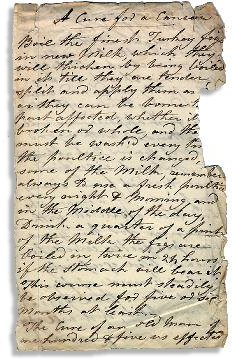 A Cure for a Cancer
Boil the finest Turkey figs
in new Milk, which they
will thicken by being boiled
in it till they are tender,
split and apply them as
as they can be borne to
part affected, whether it
broken or whole and the
must be wash'd every time
the poultice is changed
some of the Milk, remember
always to use a fresh poultice
every night & Morning and
in the Middle of the day,
Drink a quarter of a pint
of the Milk the figs are
boiled in twice in 24 hours
if the Stomach will bear it,
This course must steadily
be observed for five or six
Months at least.
The Cure of an old Man of
one hundred & five is effected